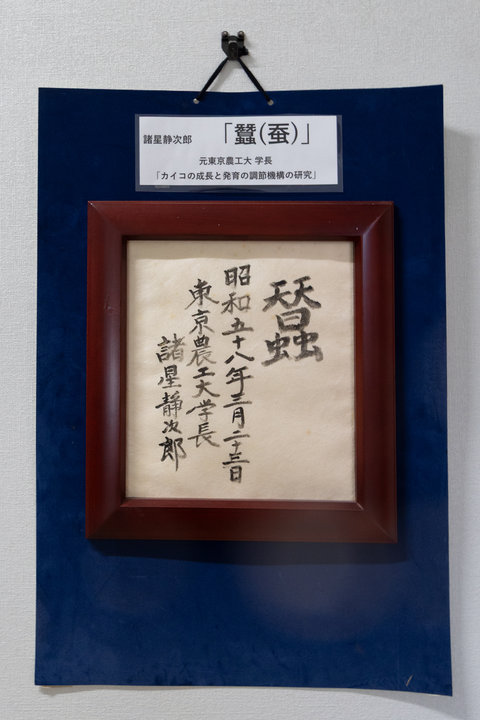 諸星静次郎 「蠶(蚕)」
元東京農工大 学長
「カイコの成長と発育の調節機構の研究」
蠶
昭和五十八年三月二十三日
東京農工大学長
諸星静次郎